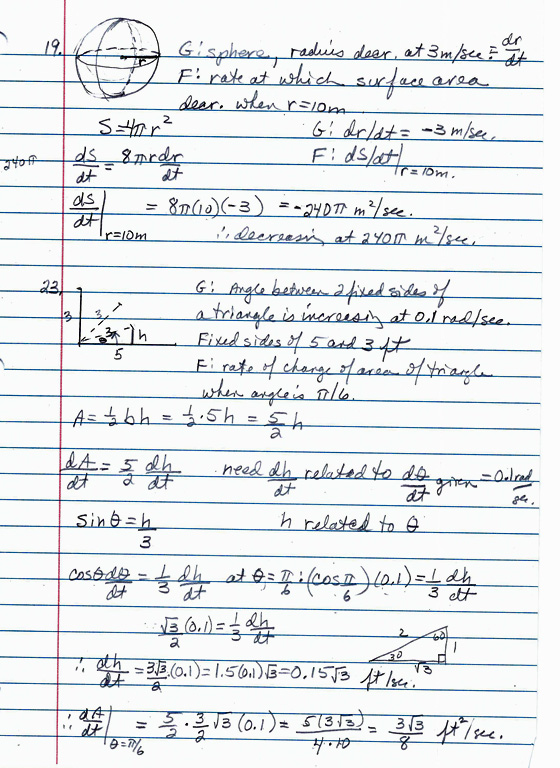 19. G: sphere, radius decr. at 3m/sec = dr/dt
r
F: rate at which surface area
decr. when r=10m
S=4πr² G: dr/dt = -3 m/sec.
240π dS/dt = 8πr dr/dt F: dS/dt|r=10m.
dS/dt|r=10m = 8π(10)(-3) = -240π m²/sec.
∴ decreasing at 240π m²/sec.
23. G: Angle between 2 fixed sides of
3 3 a triangle is increasing at 0.1 rad/sec.
h Fixed sides of 5 and 3 ft
5 F: rate of change of area of triangle
when angle is π/6.
A = ½bh = ½·5h = 5/2 h
dA/dt = 5/2 dh/dt need dh/dt related to dθ/dt given = 0.1 rad/sec.
sin θ = h/3 h related to θ
cosθ dθ/dt = 1/3 dh/dt at θ = π/6 : (cos π/6)(0.1) = 1/3 dh/dt
√3/2 (0.1) = 1/3 dh/dt 2 60 1 30 √3
∴ dh/dt = 3√3/2 · (0.1) = 1.5(0.1)√3 = 0.15√3 ft/sec.
∴ dA/dt|θ=π/6 = 5/2 · 3/2 √3 (0.1) = 5(3√3)/4·10 = 3√3/8 ft²/sec.